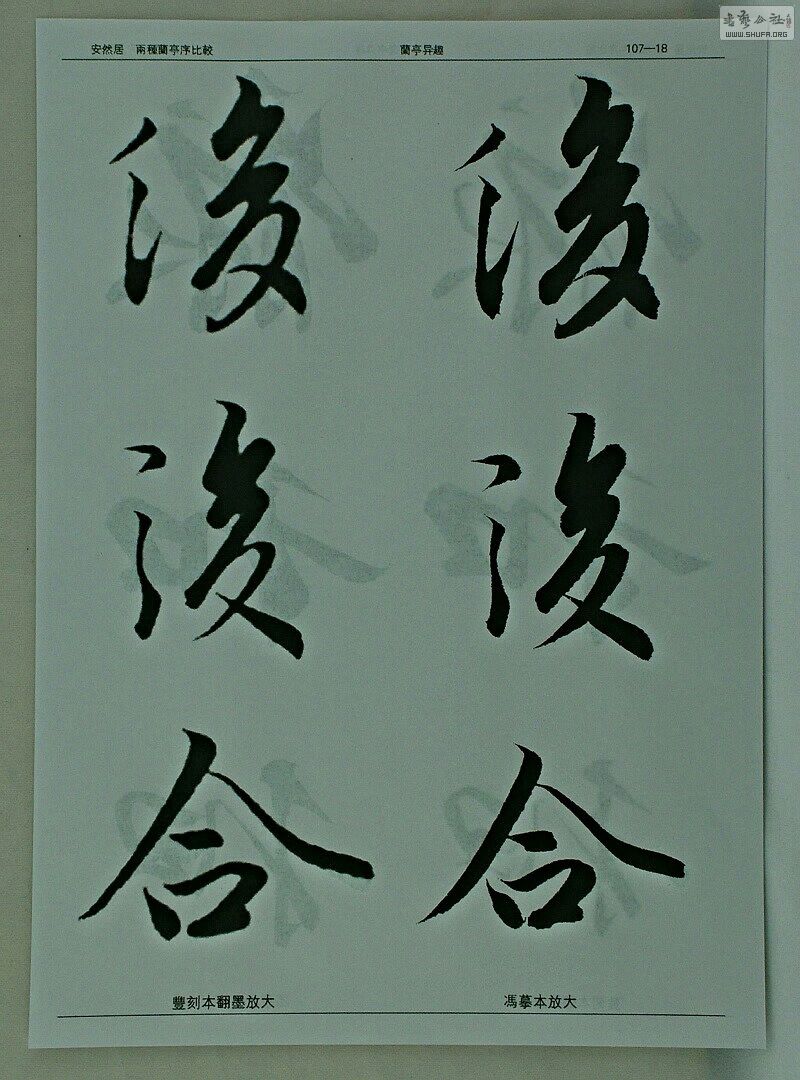 書藝公社
WWW.SHUFA.ORG
安然居 兩種蘭亭序比較 蘭亭异趣 107—18
後 後
後 後
合 合
豐刻本翻墨放大 馮摹本放大